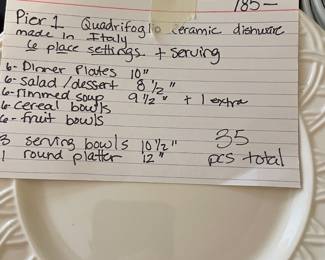 185-
Pier 1 Quadrifoglio ceramic dishware
made in Italy
6 place settings + serving
6- Dinner Plates 10"
6- salad/dessert 8 1/2"
6- rimmed soup 9 1/2" + 1 extra
6- cereal bowls
6- fruit bowls
3 serving bowls 10 1/2" 35
1 round platter 12" pcs total